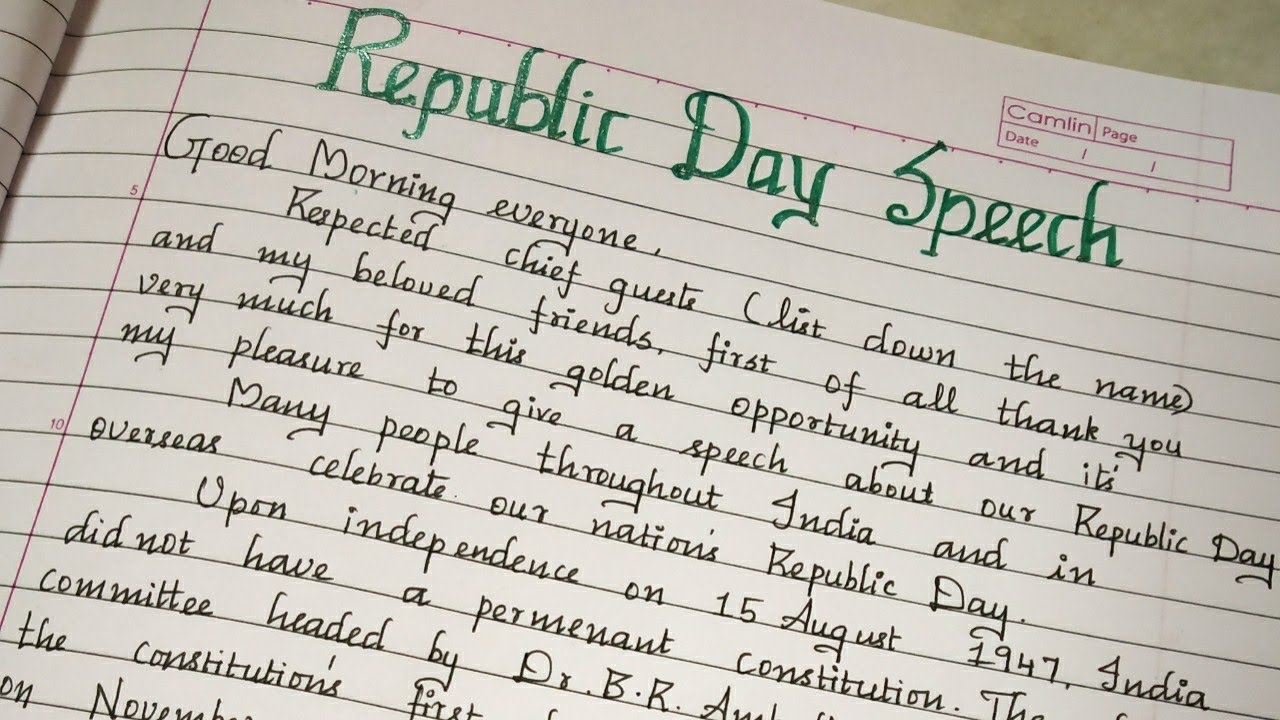 Republic Day Speech
Camlin Page
Date / /
Good Morning everyone,
5
Respected chief guests (list down the name)
and my beloved friends, first of all thank you
very much for this golden opportunity and it's
my pleasure to give a speech about our Republic Day
Many people throughout India and in
10
overseas celebrate our nation's Republic Day.
Upon independence on 15 August 1947, India
did not have a permenant constitution. The
committee headed by Dr. B. R.
the constitution's first
on November